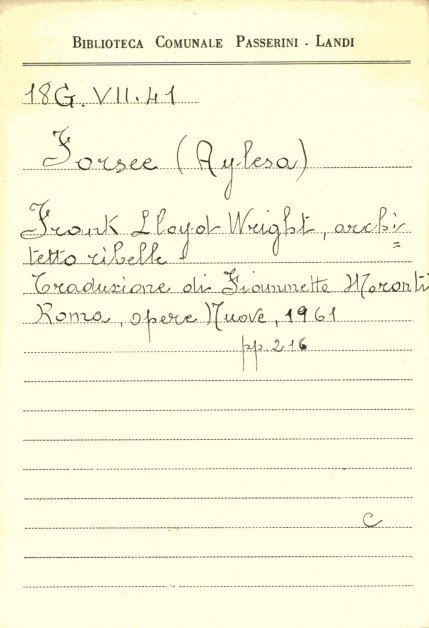 BIBLIOTECA COMUNALE PASSERINI - LANDI
18G. VII. 41
Forsee (Aylesa)
Frank Lloyd Wright, archi=
tetto ribelle
Traduzione di Fiammetta Moronti
Roma, opere Nuove, 1961
pp. 216
C